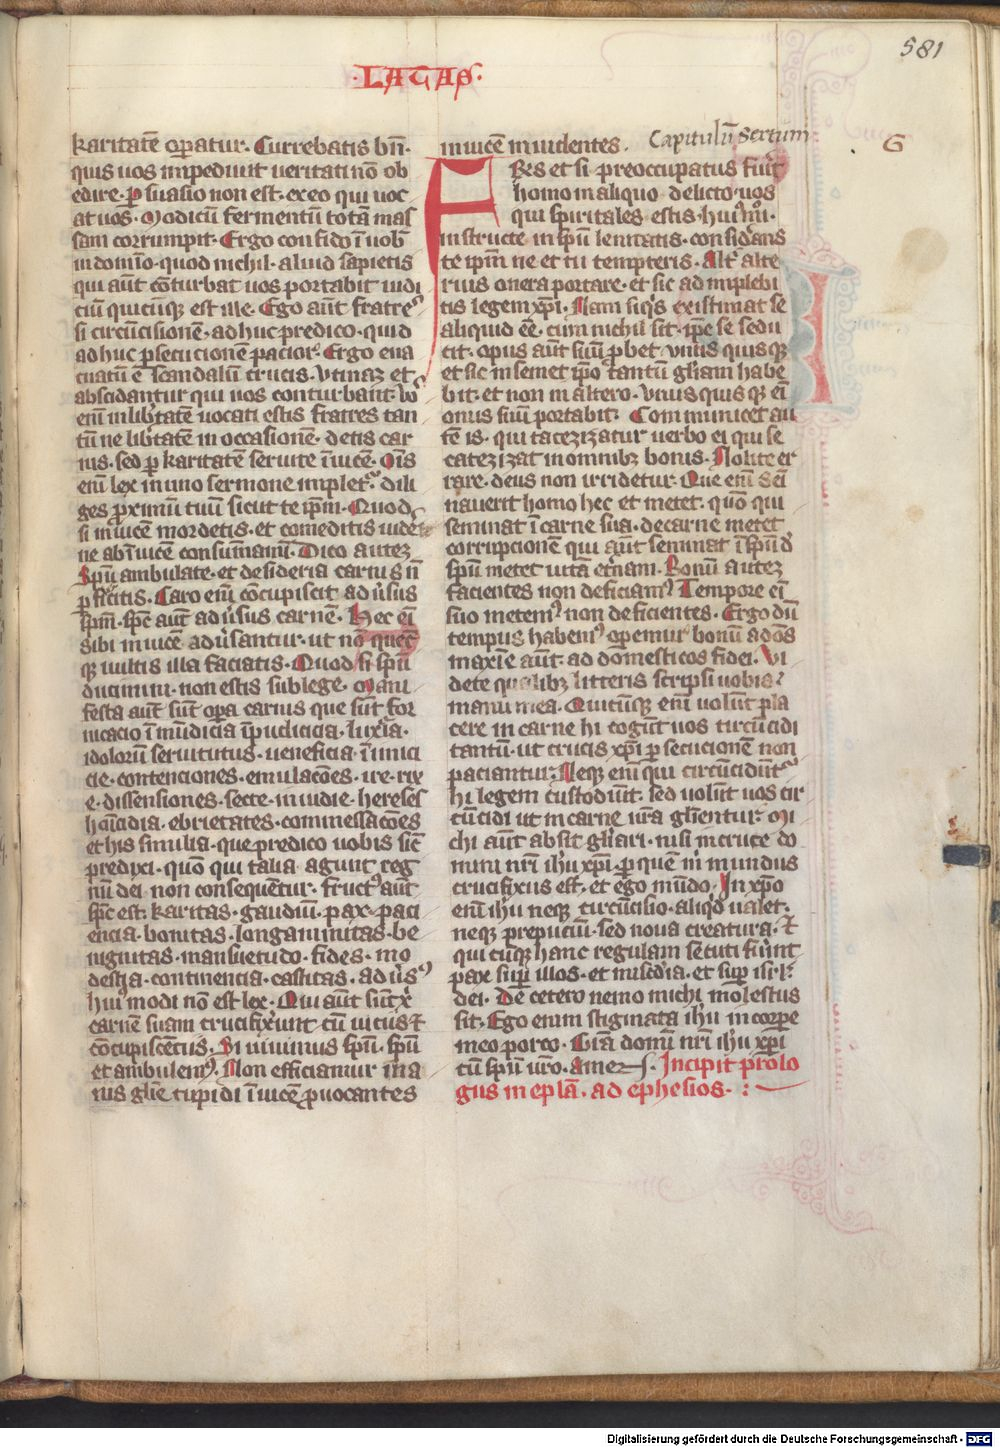 581
·LATAS·
karitatē opatur. Currebatis bn̄.
quis uos impediuit ueritati nō ob
edire. psuasio non est. ex eo qui uoc
at uos. Modicū fermentū totā mas
sam corrumpit. Ergo confido ī uob
in domīo. quod nichil. aliud sapietis
qui aūt cōturbat uos portabit iudi
ciū quicūque est ille. Ego aūt fratres
si circūcisionē. ad huc predico. quid
ad huc psecucionē pacior. Ergo eua
cuatū ē scandalū crucis. Vtinaz et
abscidantur qui uos conturbant. vo
enī in libtatē uocati estis fratres tan
tū ne libtatē in occasionē. detis car
nis. sed p karitatē seruite ī uicē. Oīs
enī lex in uno sermone impletr. dili
ges pximū tuū sicut te ipm̄. Quod
si in uicē mordetis. et comeditis uidete
ne ab ī uicē consumamī. Dico autez
Spū ambulate. et desideria carnis n̄
pficitis. Caro enī cōcupiscit adu̓sus
spm̄. spc̄ aūt adu̓sus carnē. Hec eī
sibi in uicē adu̓santur. ut nō quecū
qz uultis illa faciatis. Quod si spū
ducimini. non estis sub lege. Mani
festa aūt sūt opa carnis que sūt for
nicacio ī mūdicia īpudicicia. luxīa.
idolorū seruitutus. ueneficia. ī imici
cie. contenciones. emulacōes. ire. rix
e. dissensiones. secte. inuidie. hereses
homicidia. ebrietates. commessacōes
et his similia. que predico uobis sic̄
predixi. quō qui talia agunt reg
nū dei non consequētur. fruct⁹ aūt
spc̄ est. karitas. gaudiū. pax. paci
encia. bonitas. longanimitas. be
nignitas. mansuetudo. fides. mo
destia. continencia. castitas. adu̓s⁹
hui⁹modi nō est lex. Qui aūt sūt x̄
carnē suam crucifixerunt cū uiciis ⁊
cōcupiscētiis. Si uiuimus spū. spū
et ambulem⁹. Non efficiamur ina
nis glīe cupidi ī uicē puocantes
in uicē inuidentes. Capitulū Sextum G
FRes et si preoccupatus fuīt
homo in aliquo delicto. uos
qui spiritales estis. hui⁹mī.
instructe in spū lenitatis. considans
te ipm̄ ne et tu tempteris. Alt̓ alte
rius onera portare. et sic adimplebi
tis legem xpī. Nam siqs existimat se
aliquid eē. cum nichil sit. ipe se sedu
cit. opus aūt suū pbet. vnus quisqz
et sic in semet ipo tantū glīam habe
bit. et non in altero. vnus quisqz eī
onus suū portabit. Communicet au
tē is. qui catezizatur uerbo ei qui se
catezizat in omnibz bonis. Nolite er
rare. deus non irridetur. Que enī semi
nauerit homo hec et metet. quō qui
seminat ī carne sua. de carne metet
corrupcionē qui aūt seminat ī spū d̄
spū metet uitā etnam. Bonū autez
facientes non deficiam⁹ Tempore eī
suo metem⁹ non deficientes. Ergo dū
tempus habem⁹ opemur bonū ad oēs
maxīe aūt. ad domesticos fidei. Vi
dete qualibz litteris scripsi uobis
manu mea. Quicūqz enī uolūt pla
cere in carne hi cogūt uos circūcidi
tantū. ut crucis xpī psecucionē non
paciantur. Neqz enī qui circūcidūt⁹
hi legem custodiūt. sed uolūt uos cir
cūcidi ut in carne ur̄a glīentur. Mi
chi aūt absit glīari. nisi in cruce do
mini nr̄i ihū xpī. p quē m̄ mundus
crucifixus est. et ego mūdo. In xpo
enī ihū neqz circūcisio. aliqd ualet.
neqz prepuciū. sed noua creatura. ⁊
qui cūqz hanc regulam secuti fuīnt
pax sup illos. et misc̄dia. et sup isrl̄.
dei. De cetero nemo michi molestus
sit. Ego enim stigmata ihū in corpe
meo porto. Gr̄a domī nr̄i ihū xpī
cū spū uro. amen. Incipit prolo
gus in eplā. ad ephesios.